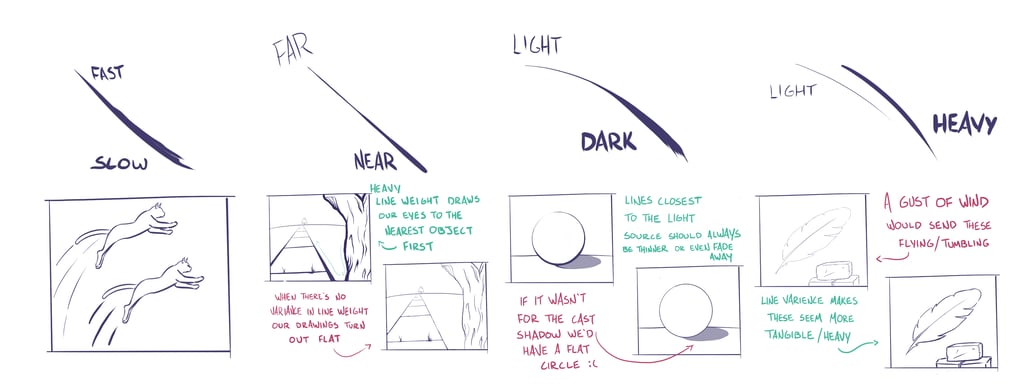 FAST
SLOW
FAR
NEAR
LIGHT
DARK
LIGHT
HEAVY
HEAVY
LINE WEIGHT DRAWS
OUR EYES TO THE
NEAREST OBJECT
FIRST
WHEN THERE'S NO
VARIANCE IN LINE WEIGHT
OUR DRAWINGS TURN
OUT FLAT
LINES CLOSEST
TO THE LIGHT
SOURCE SHOULD ALWAYS
BE THINNER OR EVEN FADE
AWAY
IF IT WASN'T
FOR THE CAST
SHADOW WE'D
HAVE A FLAT
CIRCLE :(
A GUST OF WIND
WOULD SEND THESE
FLYING/TUMBLING
LINE VARIENCE MAKES
THESE SEEM MORE
TANGIBLE/HEAVY